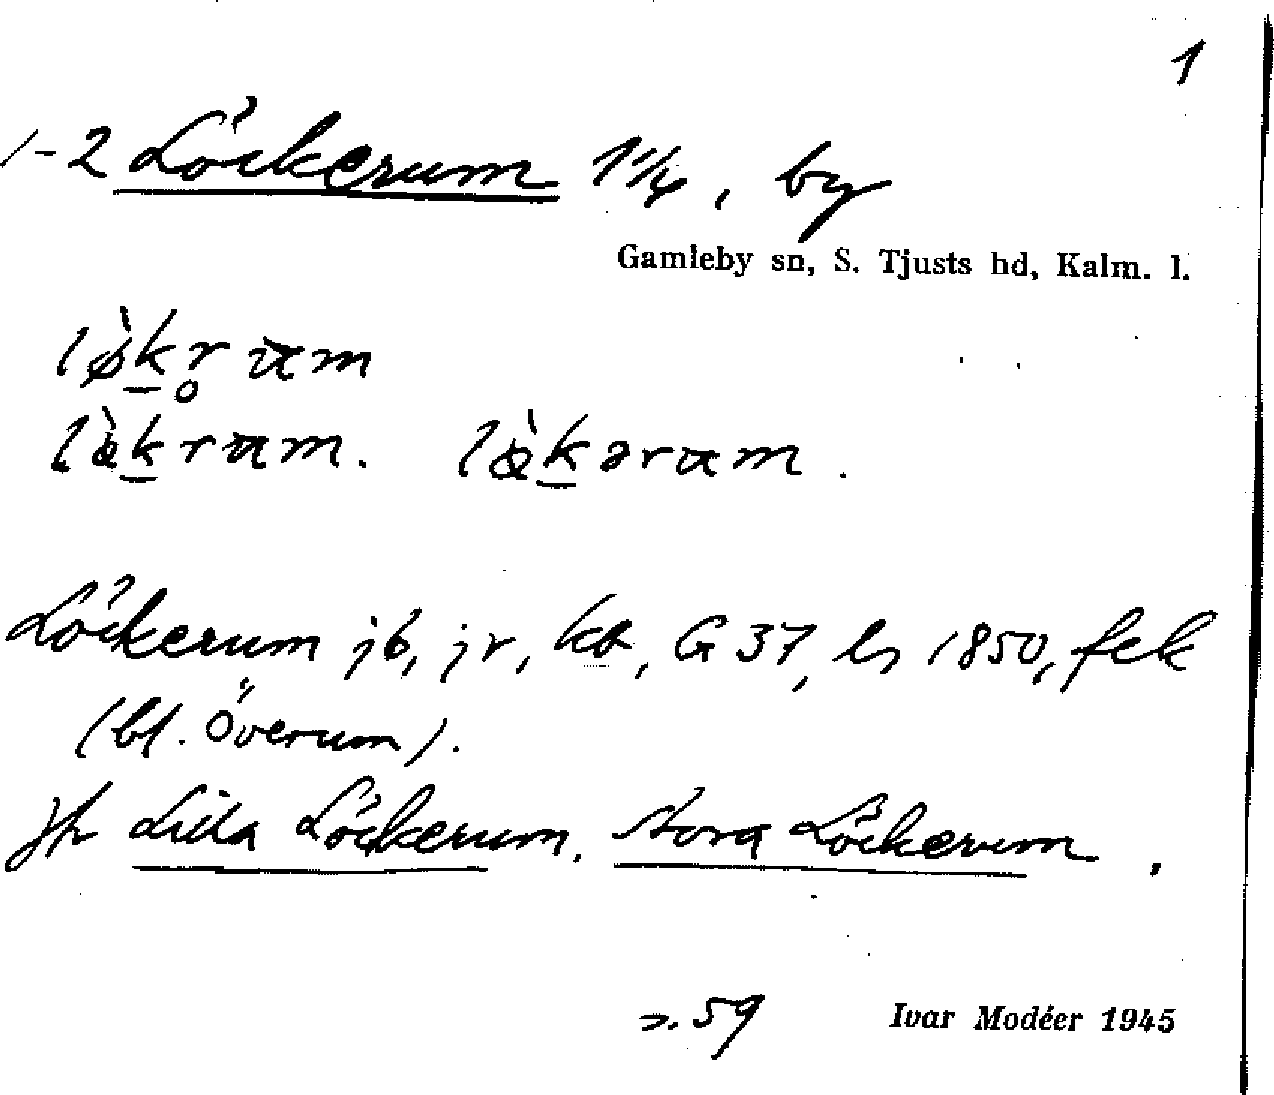 1
1-2 Löckerum 1 1/4, by
Gamleby sn, S. Tjusts hd, Kalm. l.
lø̀kr̥um
lœ̀krum. lœ̀kərum.
Löckerum jb, jr, kb, G 37, ls 1850, fek
(bl. Överum).
jfr Lilla Löckerum, Stora Löckerum,
s. 59
Ivar Modéer 1945